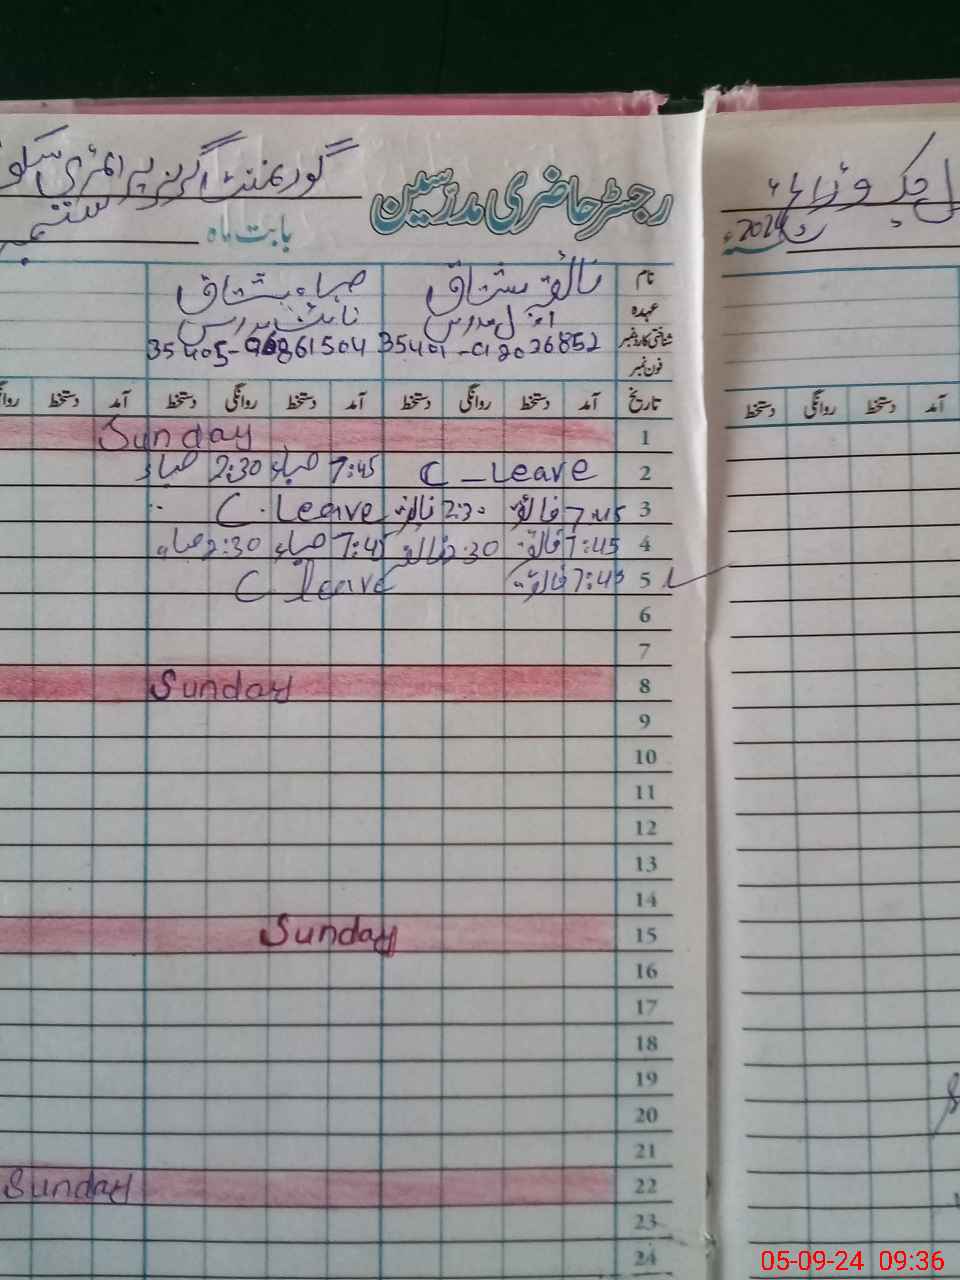 گورنمنٹ گرلز پرائمری سکول چک وڈالہ
رجسٹر حاضری مدرسین
بابت ماہ ستمبر 2024ء
نام فائقہ مشتاق صباء مشتاق
عہدہ
شناختی کارڈ نمبر 35405-96861504
فون نمبر
تاریخ آمد دستخط روانگی دستخط آمد دستخط روانگی دستخط آمد دستخط
آمد دستخط روانگی دستخط
1 Sunday
2 C-Leave 7:45 صباء 2:30 صباء
3 7:45 فائقہ 2:30 فائقہ C.Leave
4 7:45 فائقہ 2:30 فائقہ 7:45 صباء 2:30 صباء
5 7:45 فائقہ C.leave
6
7
8 Sunday
9
10
11
12
13
14
15 Sunday
16
17
18
19
20
21
22 Sunday
23
24
05-09-24 09:36